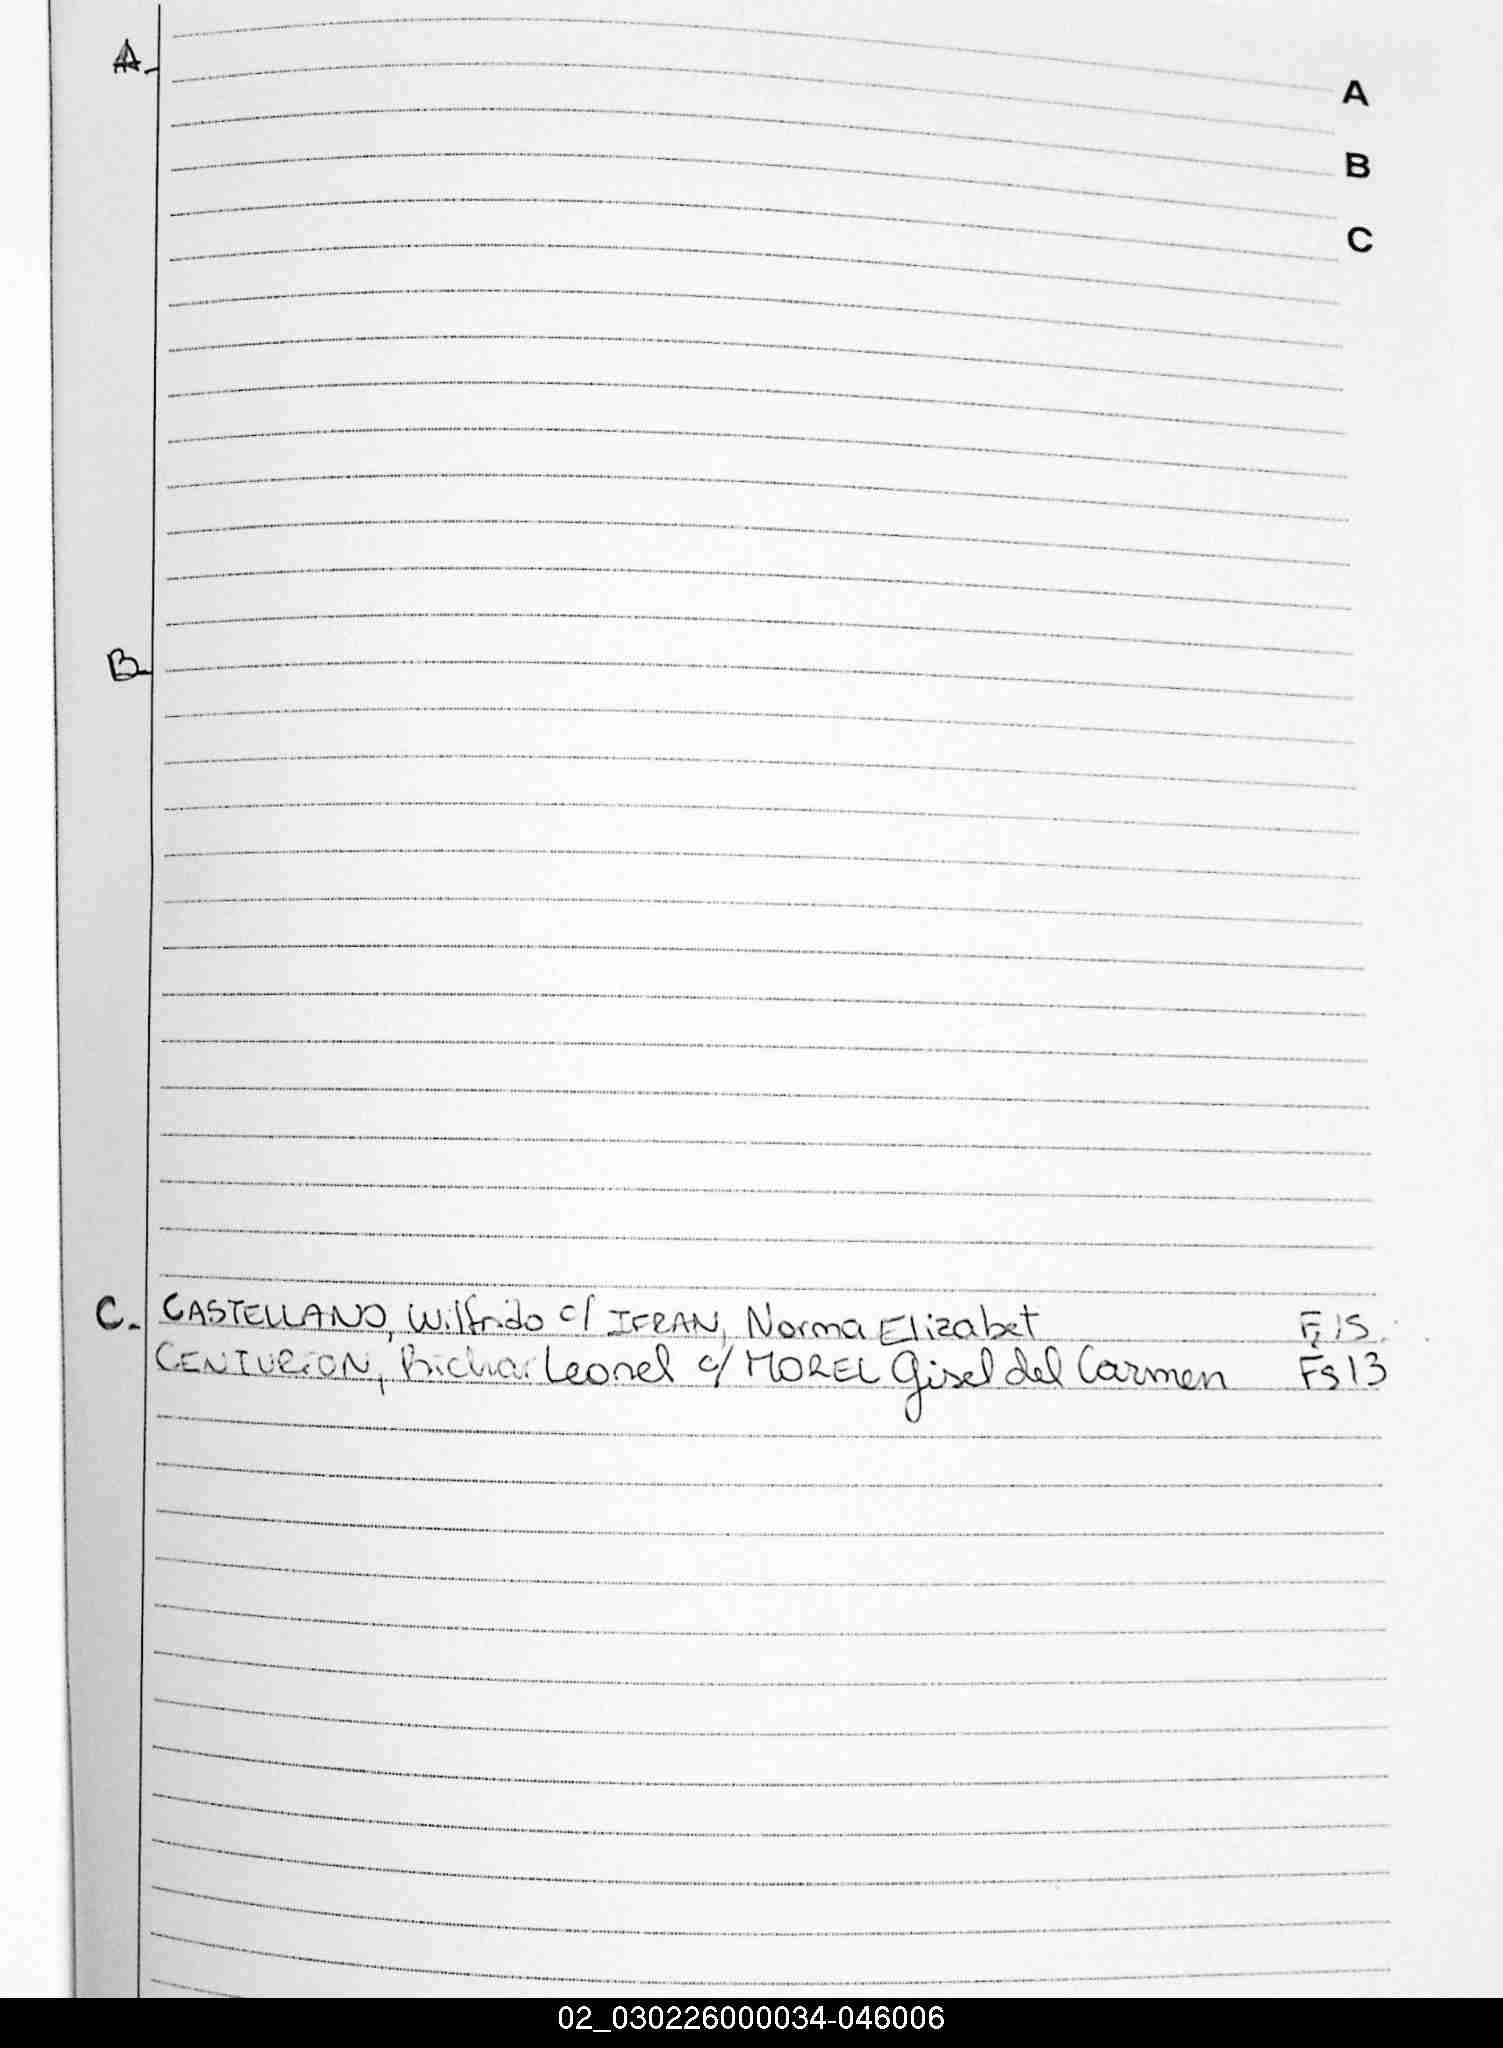 A.
A
B
C
B.
C. CASTELLANO, Wilfrido c/ IFRAN, Norma Elizabet Fs 15
CENTURION, Richar Leonel c/ MOREL Gisel del Carmen Fs 13
02_030226000034-046006